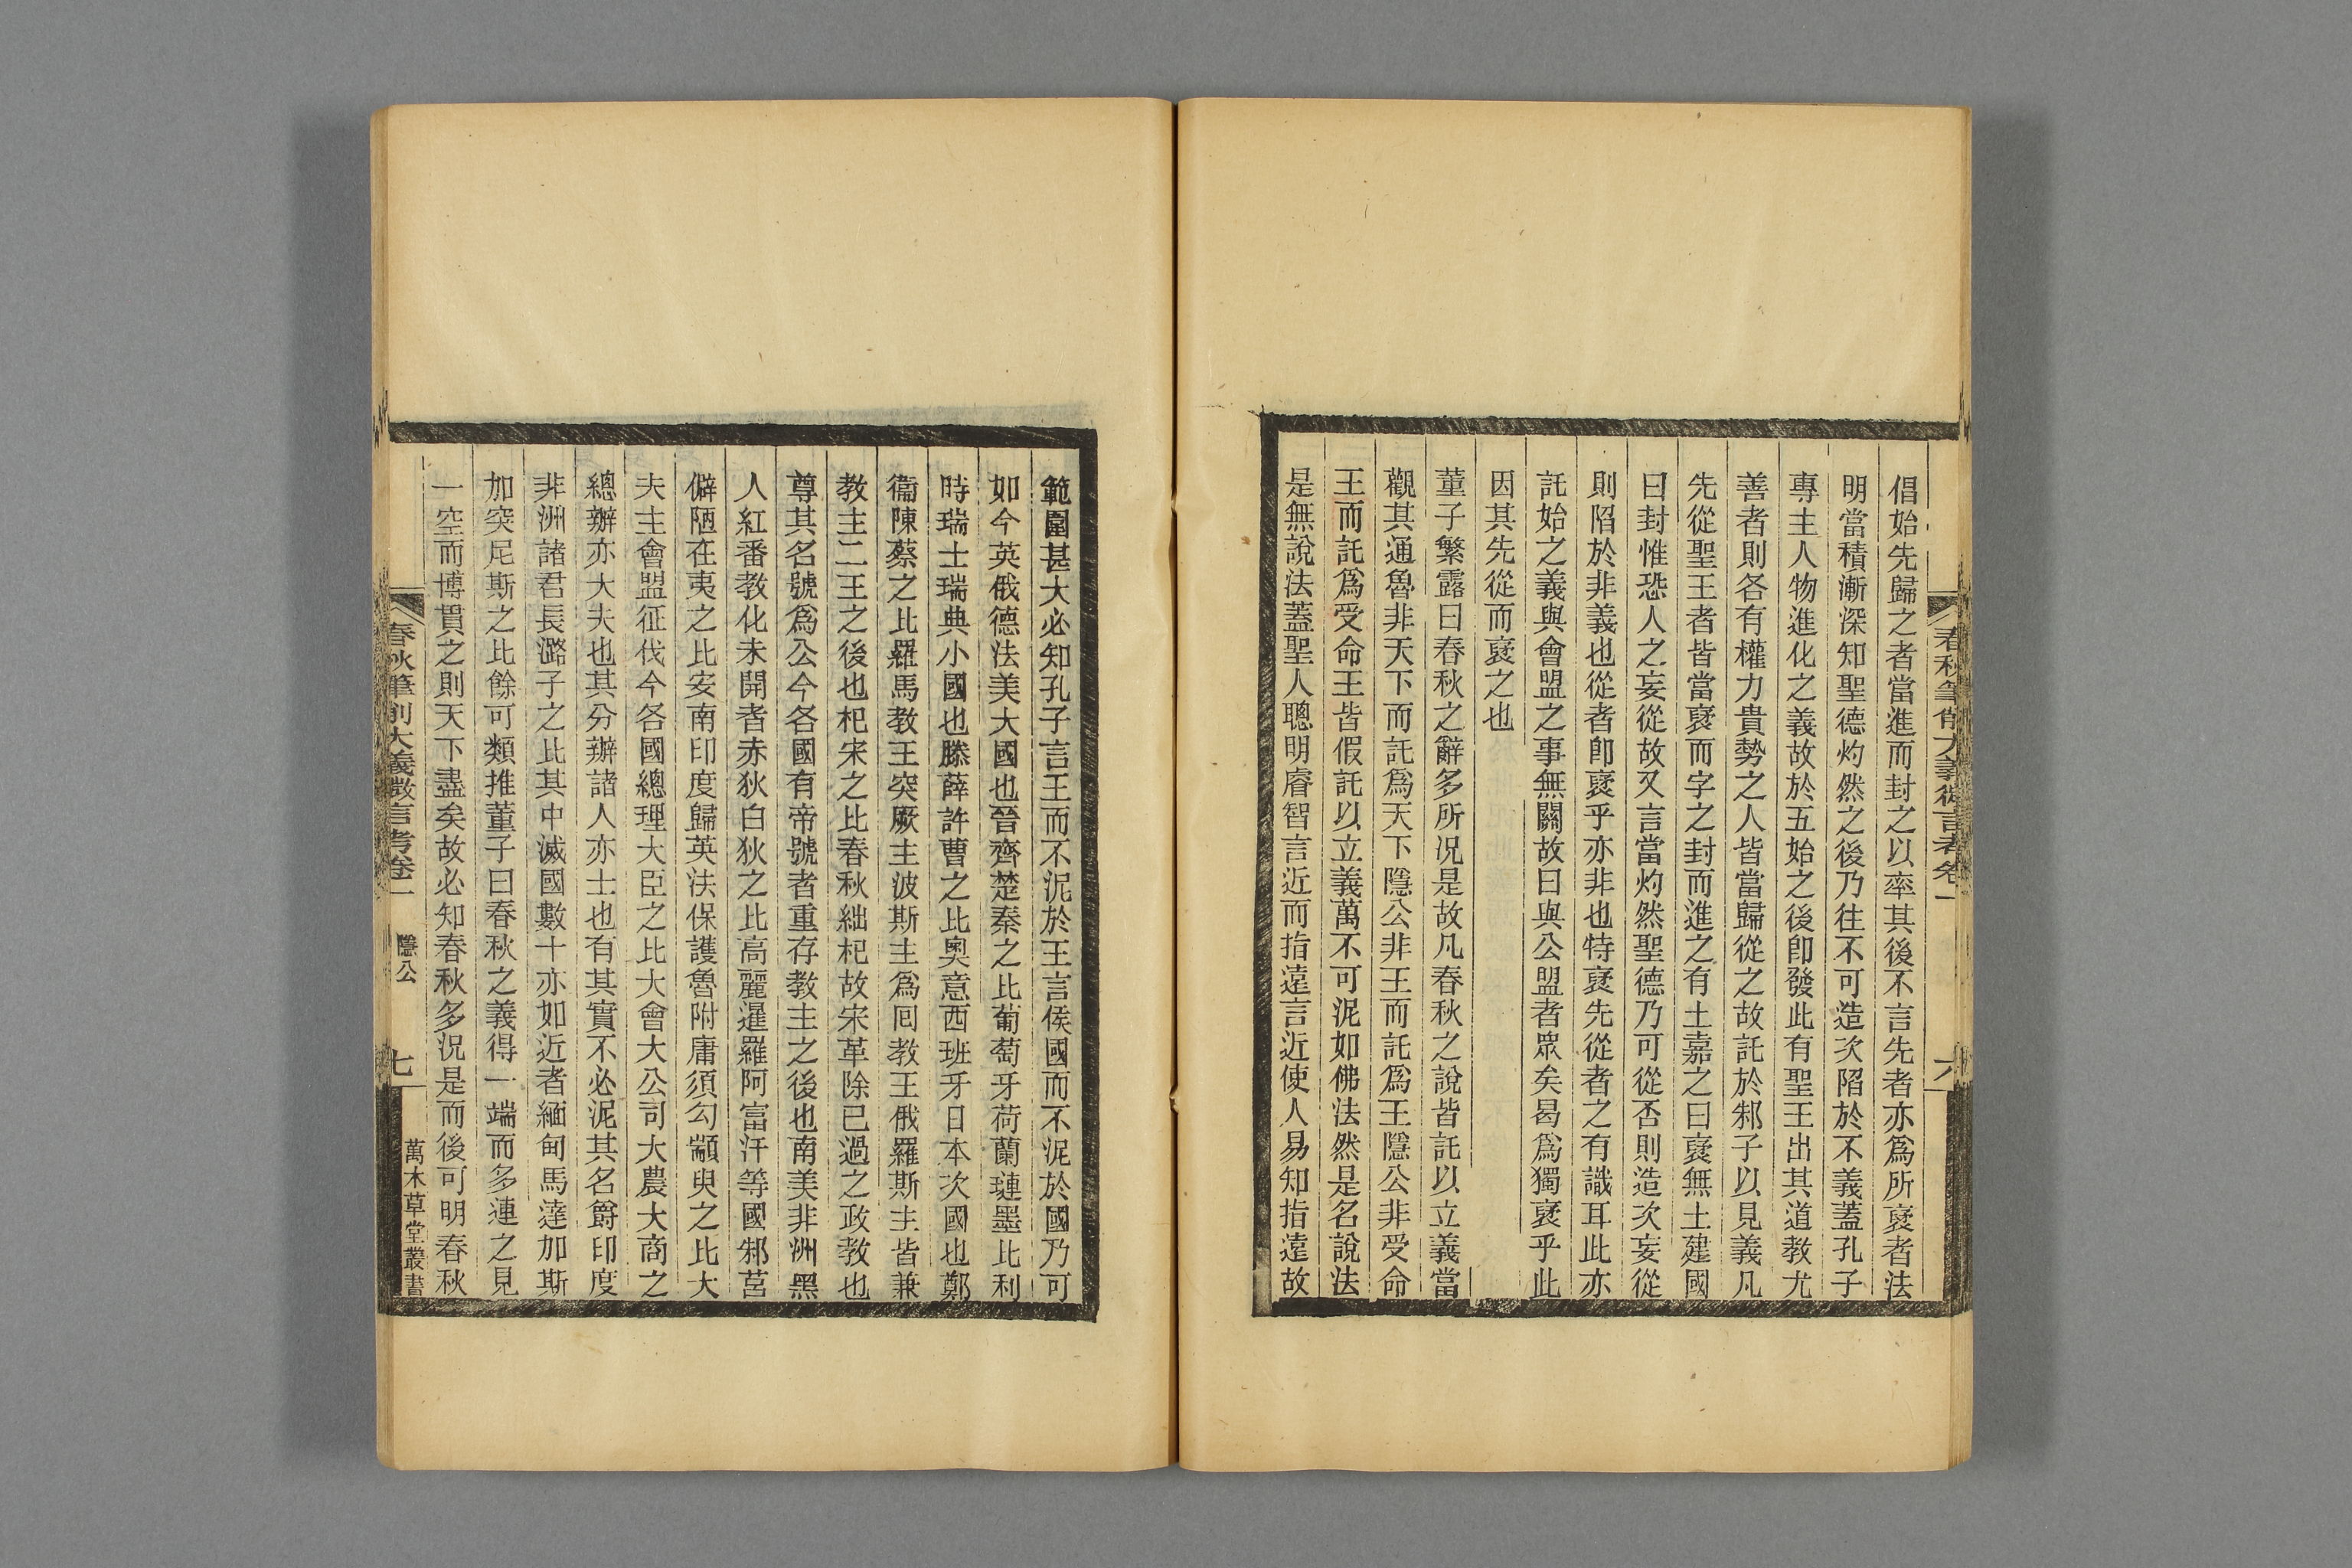 倡始先歸之者當進而封之以率其後不言先者亦爲所襃者法
明當積漸深知聖德灼然之後乃往不可造次陷於不義蓋孔子
專主人物進化之義故於五始之後卽發此有聖王出其道教尤
善者則各有權力貴勢之人皆當歸從之故託於邾子以見義凡
先從聖王者皆當襃而字之封而進之有土嘉之曰襃無土建國
曰封惟恐人之妄從故又言當灼然聖德乃可從否則造次妄從
則陷於非義也從者卽襃乎亦非也特襃先從者之有識耳此亦
託始之義與會盟之事無關故曰與公盟者眾矣曷爲獨襃乎此
因其先從而襃之也
董子繁露曰春秋之辭多所況是故凡春秋之說皆託以立義當
觀其通魯非天下而託爲天下隱公非王而託爲王隱公非受命
王而託爲受命王皆假託以立義萬不可泥如佛法然是名說法
是無說法蓋聖人聰明睿智言近而指遠言近使人易知指遠故
春秋筆削大義微言考卷一
六
範圍甚大必知孔子言王而不泥於王言侯國而不泥於國乃可
如今英俄德法美大國也晉齊楚秦之比葡萄牙荷蘭璉墨比利
時瑞士瑞典小國也滕薛許曹之比奧意西班牙日本次國也鄭
衞陳蔡之比羅馬教王突厥主波斯主爲囘教王俄羅斯主皆兼
教主二王之後也杞宋之比春秋絀杞故宋革除已過之政教也
尊其名號爲公今各國有帝號者重存教主之後也南美非洲黑
人紅番教化未開者赤狄白狄之比高麗暹羅阿富汗等國邾莒
僻陋在夷之比安南印度歸英法保護魯附庸須句顓臾之比大
夫主會盟征伐今各國總理大臣之比大會大公司大農大商之
總辦亦大夫也其分辦諸人亦士也有其實不必泥其名爵印度
非洲諸君長潞子之比其中滅國數十亦如近者緬甸馬達加斯
加突尼斯之比餘可類推董子曰春秋之義得一端而多連之見
一空而博貫之則天下盡矣故必知春秋多況是而後可明春秋
春秋筆削大義微言考卷一
隱公
七
萬木草堂叢書